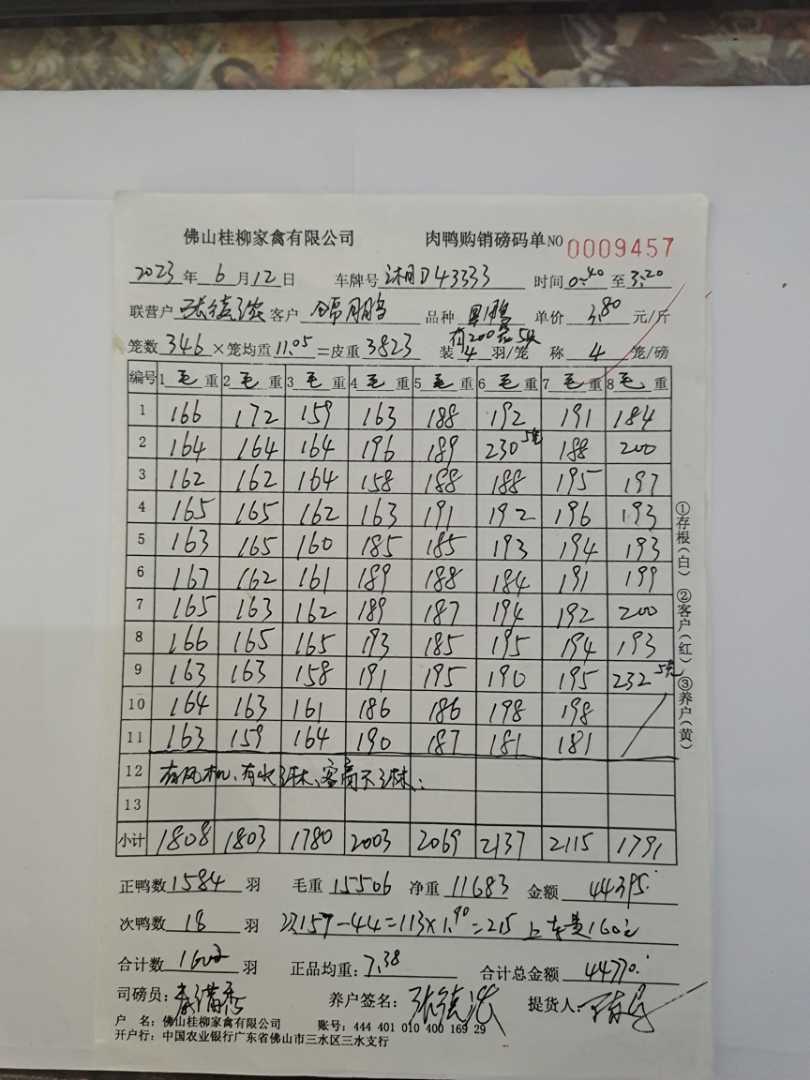 佛山桂柳家禽有限公司 肉鸭购销磅码单 NO 0009457
2023年6月12日 车牌号 湘D43333 时间 0:40 至 3:20
联营户 客户 鹏 品种 单价 3.80 元/斤
有200 5只
笼数 346 × 笼均重 11.05 = 皮重 3823 装 4 羽/笼 称 4 笼/磅
编号 1 毛重 2 毛重 3 毛重 4 毛重 5 毛重 6 毛重 7 毛重 8 毛重
1 166 172 159 163 188 192 191 184
2 164 164 164 196 189 230 5笼 188 200
3 162 162 164 158 188 188 195 197
4 165 165 162 163 191 192 196 193
5 163 165 160 185 185 193 194 193
6 167 162 161 189 188 184 191 199
7 165 163 162 189 187 194 192 200
8 166 165 165 193 185 195 194 193
9 163 163 158 191 195 190 195 232 5笼
10 164 163 161 186 186 198 198
11 163 159 164 190 187 181 181
12 有风机、有水淋、客商不淋.
13
小计 1808 1803 1780 2003 2069 2137 2115 1791
①存根(白) ②客户(红) ③养户(黄)
正鸭数 1584 羽 毛重 15506 净重 11683 金额 44395.
次鸭数 18 羽 次157-44=113×1.90=215 上车费160元
合计数 1602 羽 正品均重: 7.38 合计总金额 44770.
司磅员: 养户签名: 提货人:
户 名: 佛山桂柳家禽有限公司 账号: 444 401 010 400 169 29
开户行: 中国农业银行广东省佛山市三水区三水支行